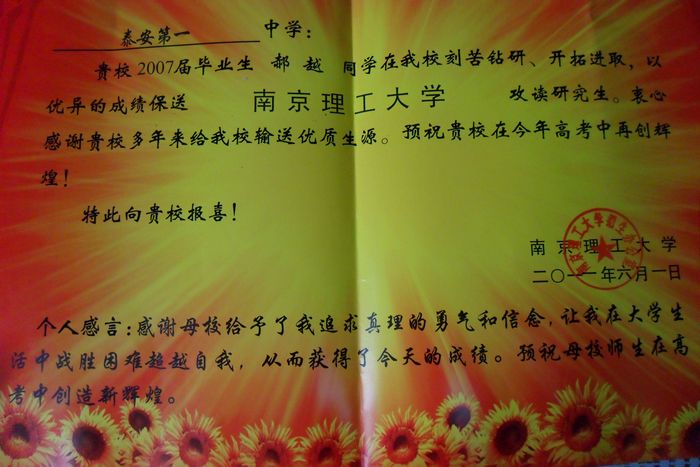 泰安第一 中学：
贵校2007届毕业生 郝 越 同学在我校刻苦钻研、开拓进取，以
优异的成绩保送 南京理工大学 攻读研究生。衷心
感谢贵校多年来给我校输送优质生源。预祝贵校在今年高考中再创辉
煌！
特此向贵校报喜！
南京理工大学
二〇一一年六月一日
个人感言：感谢母校给予了我追求真理的勇气和信念，让我在大学生
活中战胜困难超越自我，从而获得了今天的成绩。预祝母校师生在高
考中创造新辉煌。